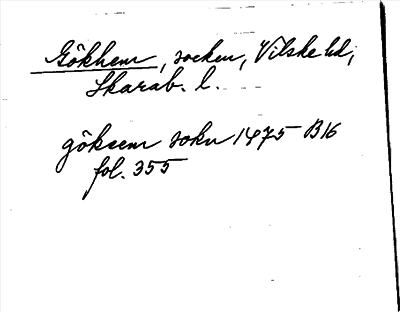 Gökhem, socken, Vilske hd,
Skarab. l.
göksem sokn 1475 B16
fol. 355